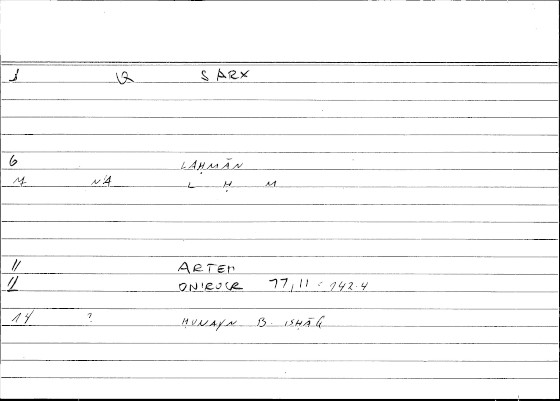 1 SARX
6 LAḤMĀN
7 NA L Ḥ M
11 ARTEM
12 ONIROCR 77,11 : 142.4
14 ? ḤUNAYN B. ISḤĀQ